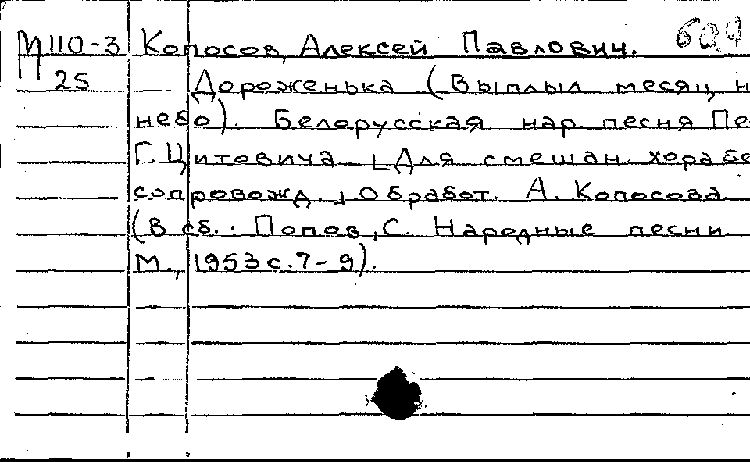 М110-3 Копосов, Алексей Павлович.
25 Дороженька (Выплыл месяц н
небо). Белорусская нар песня Пе
Г. Цитовича [Для смешан. хора бе
сопровожд.] Обработ. А. Копосова
(В сб.: Попов, С. Народные песни
М., 1953 с. 7-9).